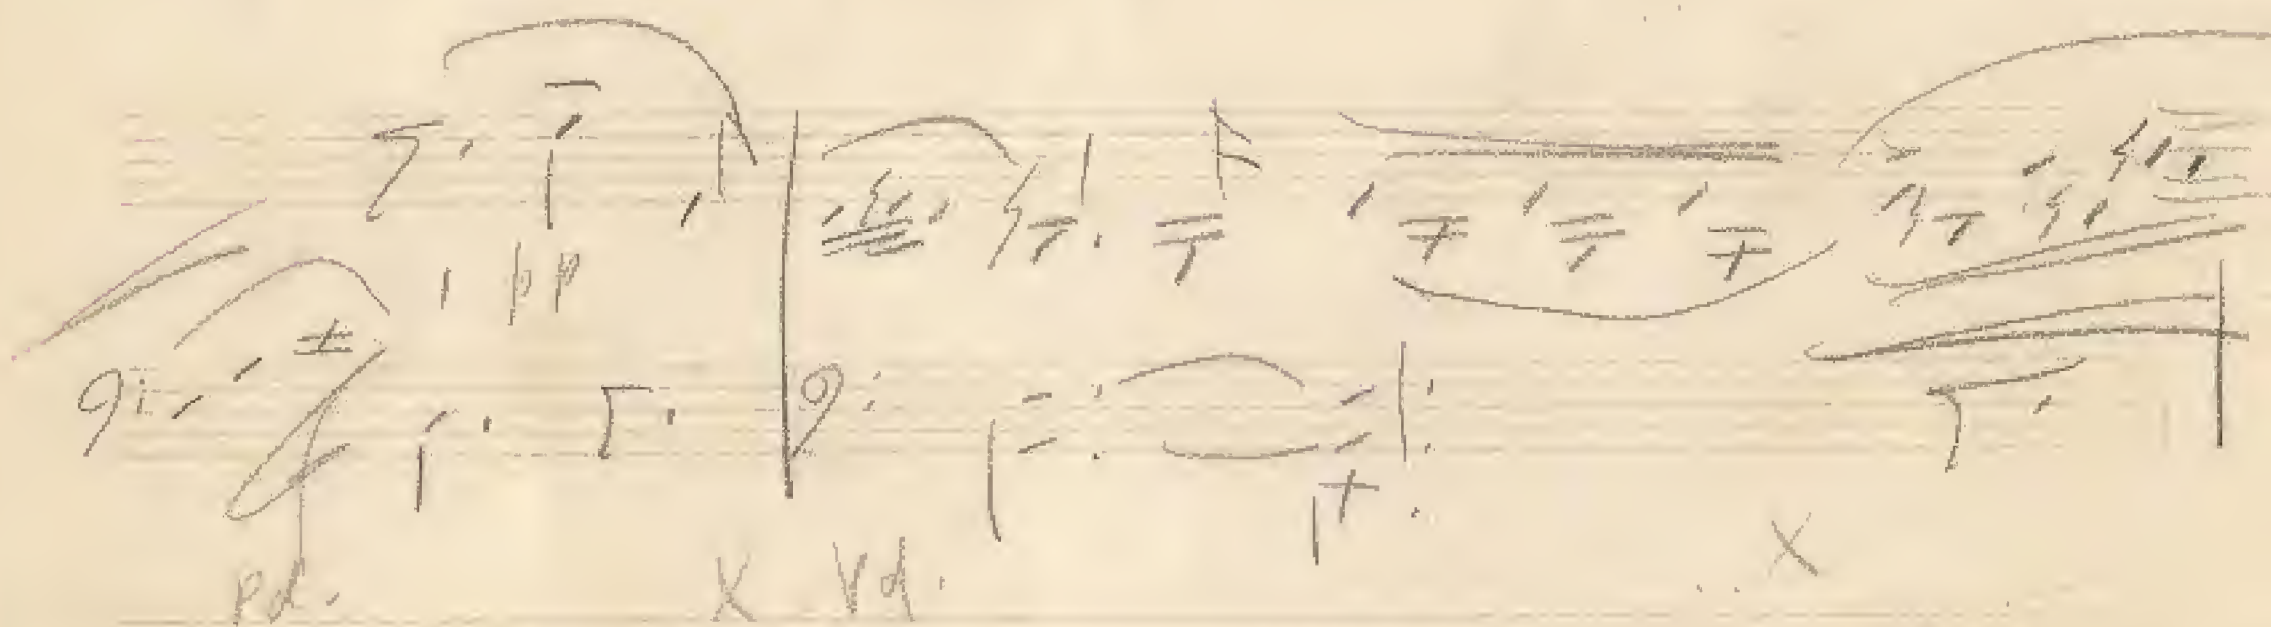 pp
Pd. X Vd. X